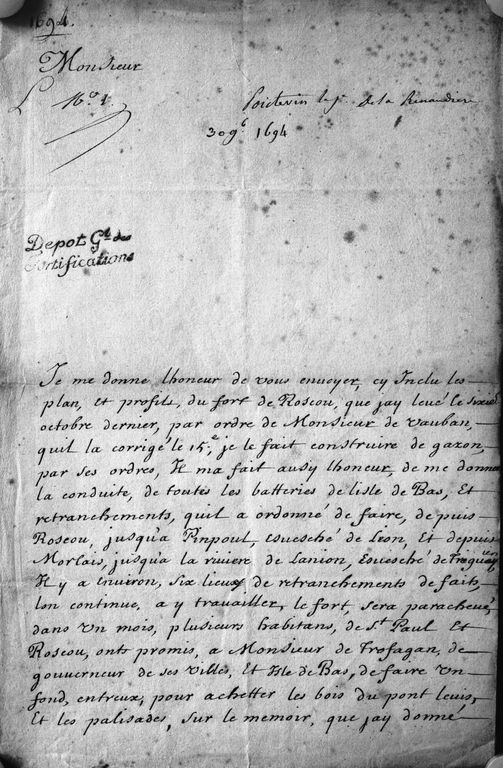 1694.
Monsieur
N.º 1.
Poictevin de la Renaudiere
30 9.b 1694
Depot G.al des
fortifications
Je me donne lhoneur de vous envoyer, cy Inclu les
plan, et profils, du fort de Roscou, que jay levé le sixie
octobre dernier, par ordre de Monsieur de Vauban,
quil la corrigé le 15.e je le fait construire de gazon,
par ses ordres, Il ma fait ausy lhoneur, de me donner
la conduite, de toutes les batteries de lisle de Bas, Et
retranchements, quil a ordonné de faire, de puis
Roscou, jusqu'a Pinpoul, Esvesché de Leon, Et depuis
Morlais, jusqu'a la riviere de Lanion, Esvesché de Treguer
Il y a environ, six lieux de retranchements de faits,
lon continue, a y travailler, le fort sera parachevé,
dans un mois, plusieurs habitans, de S.t Paul Et
Roscou, onts promis, a Monsieur de Trofagan, de
gouverneur de ses villes, Et Isle de Bas, de faire un
fond, entreux, pour achetter les bois du pont levis,
Et les palisades, sur le memoir, que jay donné